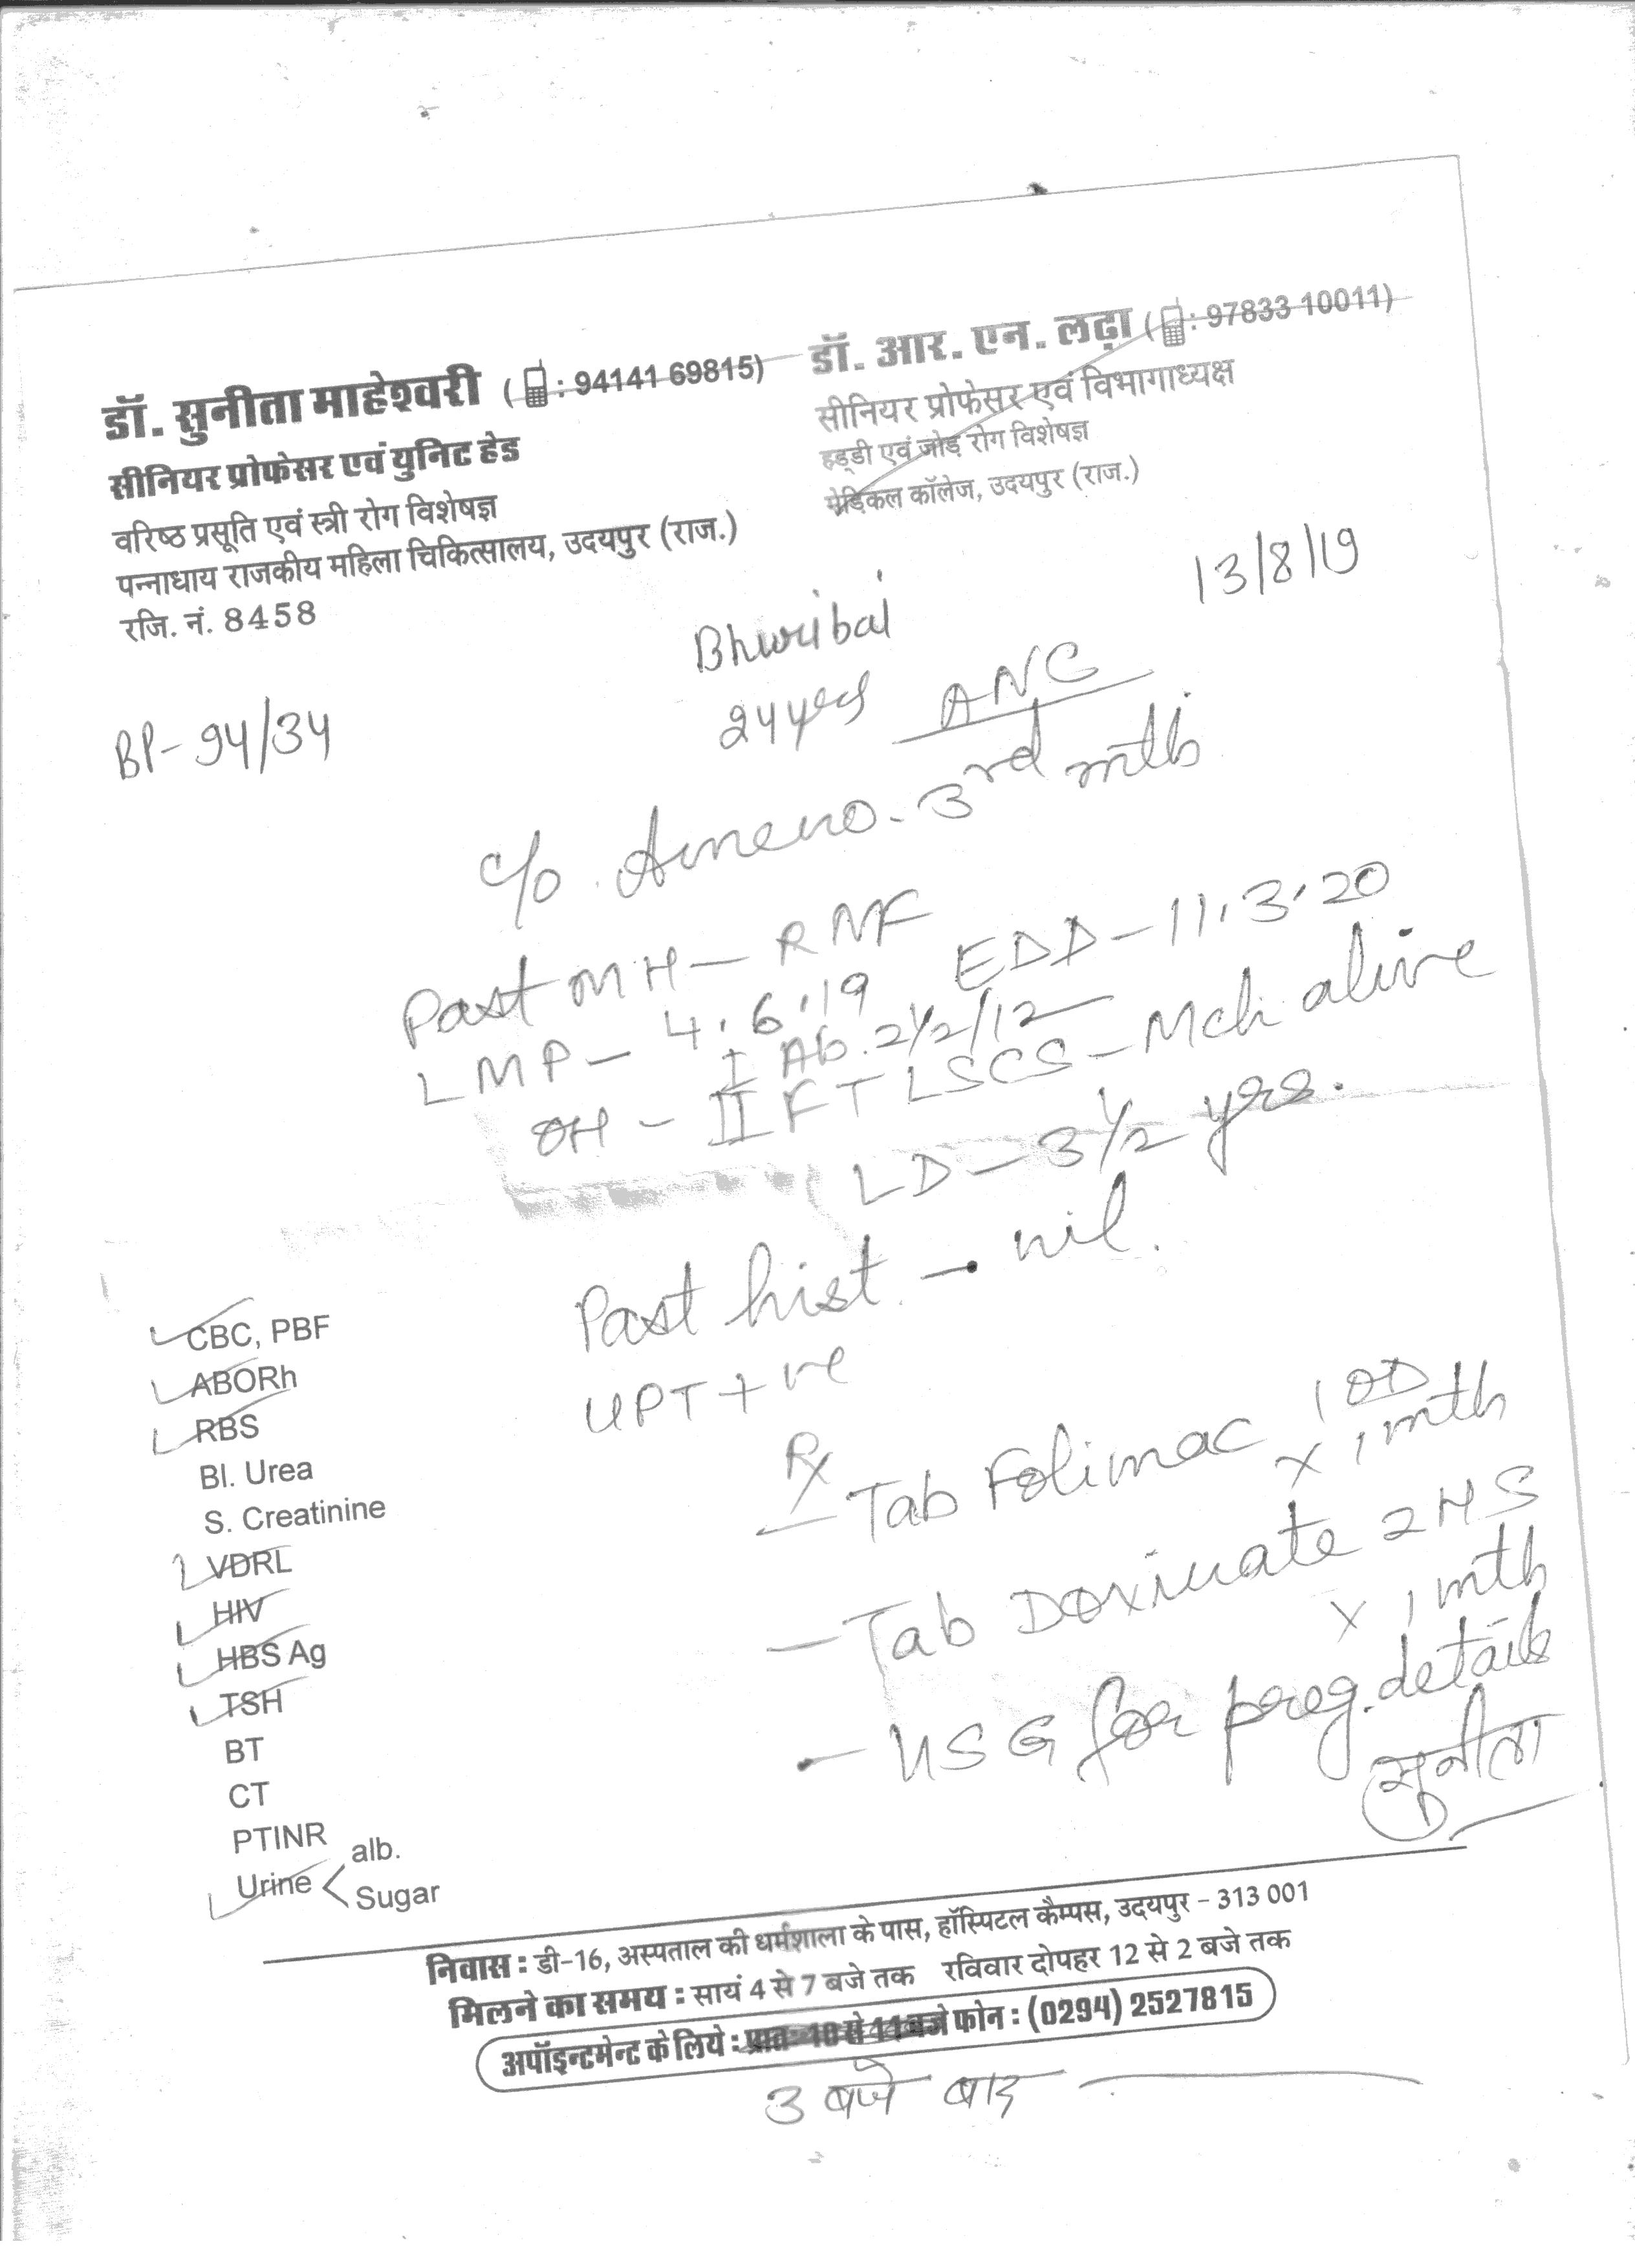 डॉ. सुनीता माहेश्वरी (: 94141 69815)
सीनियर प्रोफेसर एवं युनिट हेड
वरिष्ठ प्रसूति एवं स्त्री रोग विशेषज्ञ
पन्नाधाय राजकीय महिला चिकित्सालय, उदयपुर (राज.)
रजि. नं. 8458
डॉ. आर. एन. लढ़ा (: 97833 10011)
सीनियर प्रोफेसर एवं विभागाध्यक्ष
हड्डी एवं जोड़ रोग विशेषज्ञ
मेडिकल कॉलेज, उदयपुर (राज.)
13/8/19
Bhuribai
24 yrs ANC
BP- 94/34
c/o. Ameno. 3rd mth
Past MH - RNF
LMP - 4.6.19 EDD - 11.3.20
I Ab. 2½/12
OH - II FT LSCS - Mch alive
LD - 3½ yrs.
Past hist. - nil.
UPT +ve
CBC, PBF
ABORh
RBS
Bl. Urea
S. Creatinine
VDRL
HIV
HBS Ag
TSH
BT
CT
PTINR
Urine < alb.
Sugar
Rx
- Tab Folimac 1 OD
x 1 mth
- Tab Doxinate 2 HS
x 1 mth
- USG for preg. details
सुनीता
निवास : डी-16, अस्पताल की धर्मशाला के पास, हॉस्पिटल कैम्पस, उदयपुर - 313 001
मिलने का समय : सायं 4 से 7 बजे तक रविवार दोपहर 12 से 2 बजे तक
अपॉइन्टमेन्ट के लिये : प्रातः 10 से 11 बजे फोन : (0294) 2527815
3 बजे बाद